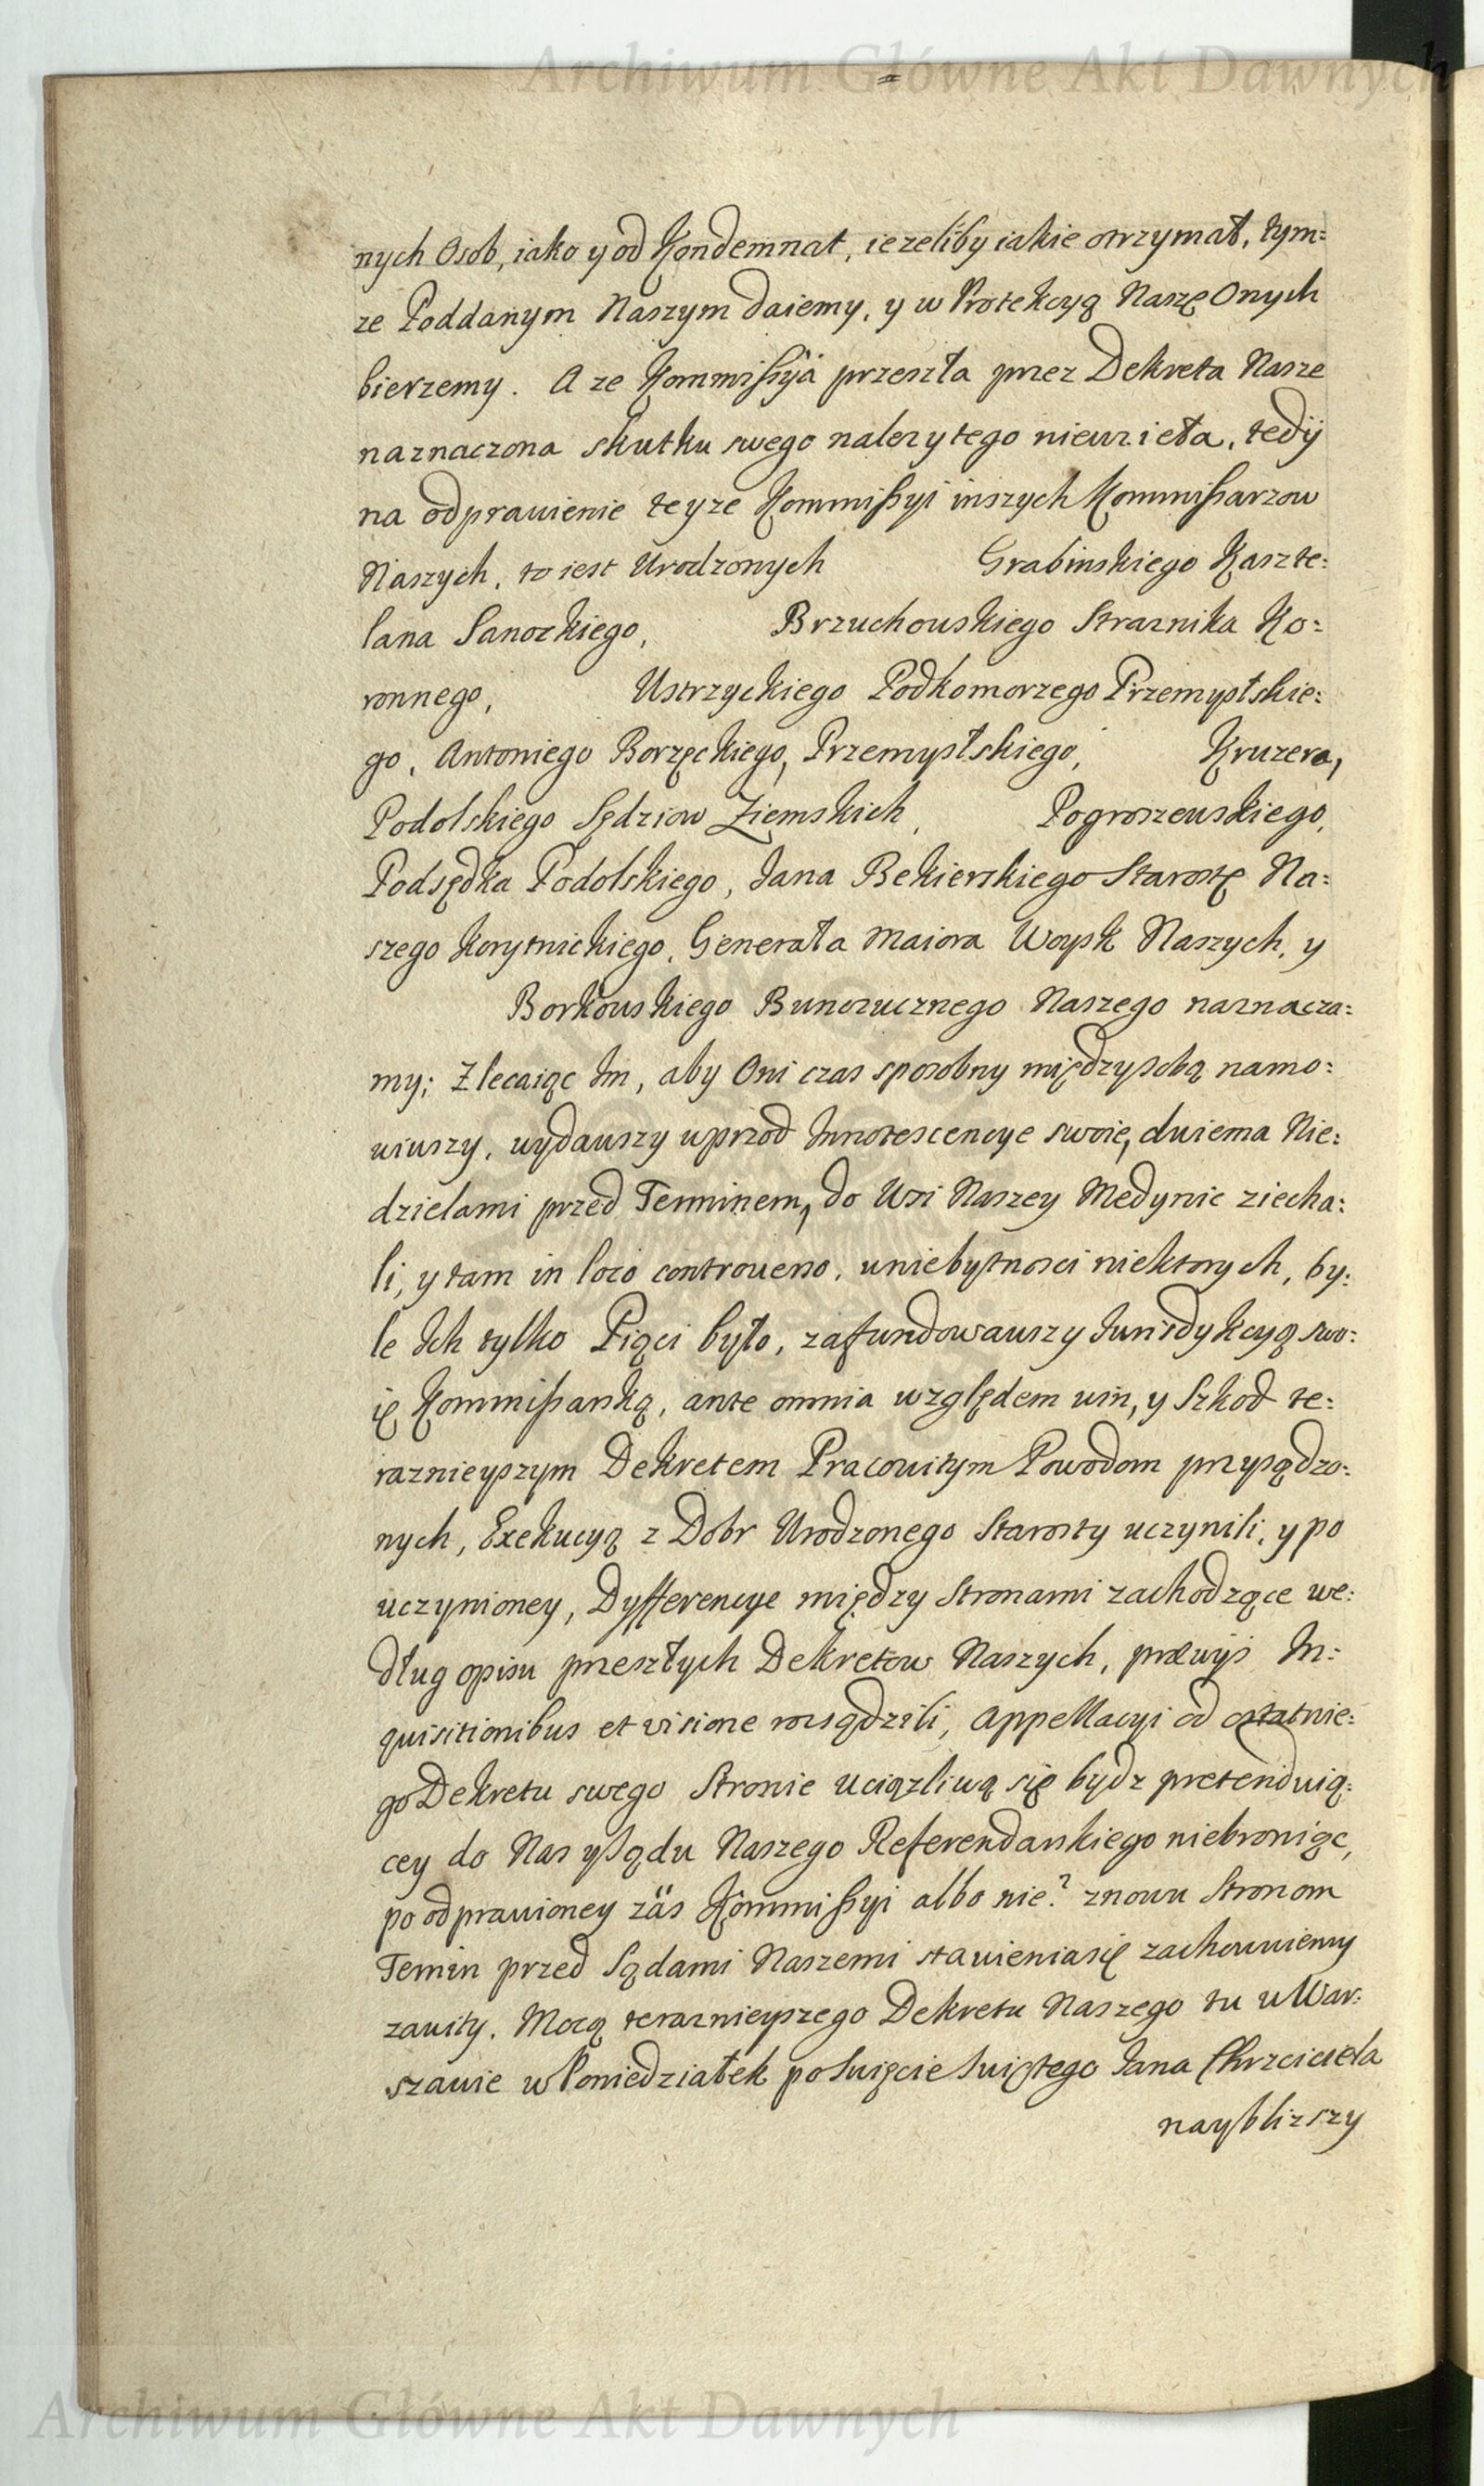 Archiwum Główne Akt Dawnych
nych Osob, iako y od Kondemnat, iezeliby iakie otrzymał, tym=
ze Poddanym Naszym daiemy, y w Protekcyą Naszę Onych
bierzemy. A ze Kommißyia przeszła przez Dekreta Nasze
naznaczona skutku swego nalezytego niewzieła, tedy
na odprawienie teyze Kommißyi inszych Kommißarzow
Naszych, to iest Urodzonych Grabinskiego Kaszte=
lana Sanockiego, Brzuchowskiego Straznika Ko=
ronnego, Ustrzyckiego Podkomorzego Przemyslskie=
go, Antoniego Borzęckiego, Przemyslskiego, Kruzera,
Podolskiego Sędziow Ziemskich, Pogroszewskiego,
Podsędka Podolskiego, Jana Bekierskiego Starostę Na=
szego Korytnickiego, Generała Maiora Woysk Naszych, y
Borkowskiego Bunczucznego Naszego naznacza=
my; Zlecaiąc Im, aby Oni czas sposobny międzysobą namo=
wiwszy, wydawszy uprzod Innotescencye swoie, dwiema Nie=
dzielami przed Terminem, do Wsi Naszey Medynic ziecha=
li, y tam in loco controverso, wniebytnosci niektorych, by=
le Ich tylko Pięci było, zafundowawszy Iurisdykcyą swo=
ię Kommißarską, ante omnia względem win, y Szkod te=
raznieyszym Dekretem Pracowitym Powodom przysądzo=
nych, Exekucyą z Dobr Urodzonego Starosty uczynili, y po
uczynioney, Dyfferencye między Stronami zachodzące we=
dług opisu przeszłych Dekretow Naszych, prævijs In=
quisitionibus et visione rozsądzili, Appellacyi od ostatnie=
go Dekretu swego Stronie uciązliwą się bydz pretenduią=
cey do Nas y Sądu Naszego Referendarskiego niebroniąc,
po odprawioney zäs Kommißyi albo nie? znowu Stronom
Termin przed Sądami Naszemi stawieniasię zachowuiemy
zawity. Mocą teraznieyszego Dekretu Naszego tu w War=
szawie w Poniedziałek po Swięcie Swiętego Jana Chrzciciela
nayblizszy
Archiwum Główne Akt Dawnych